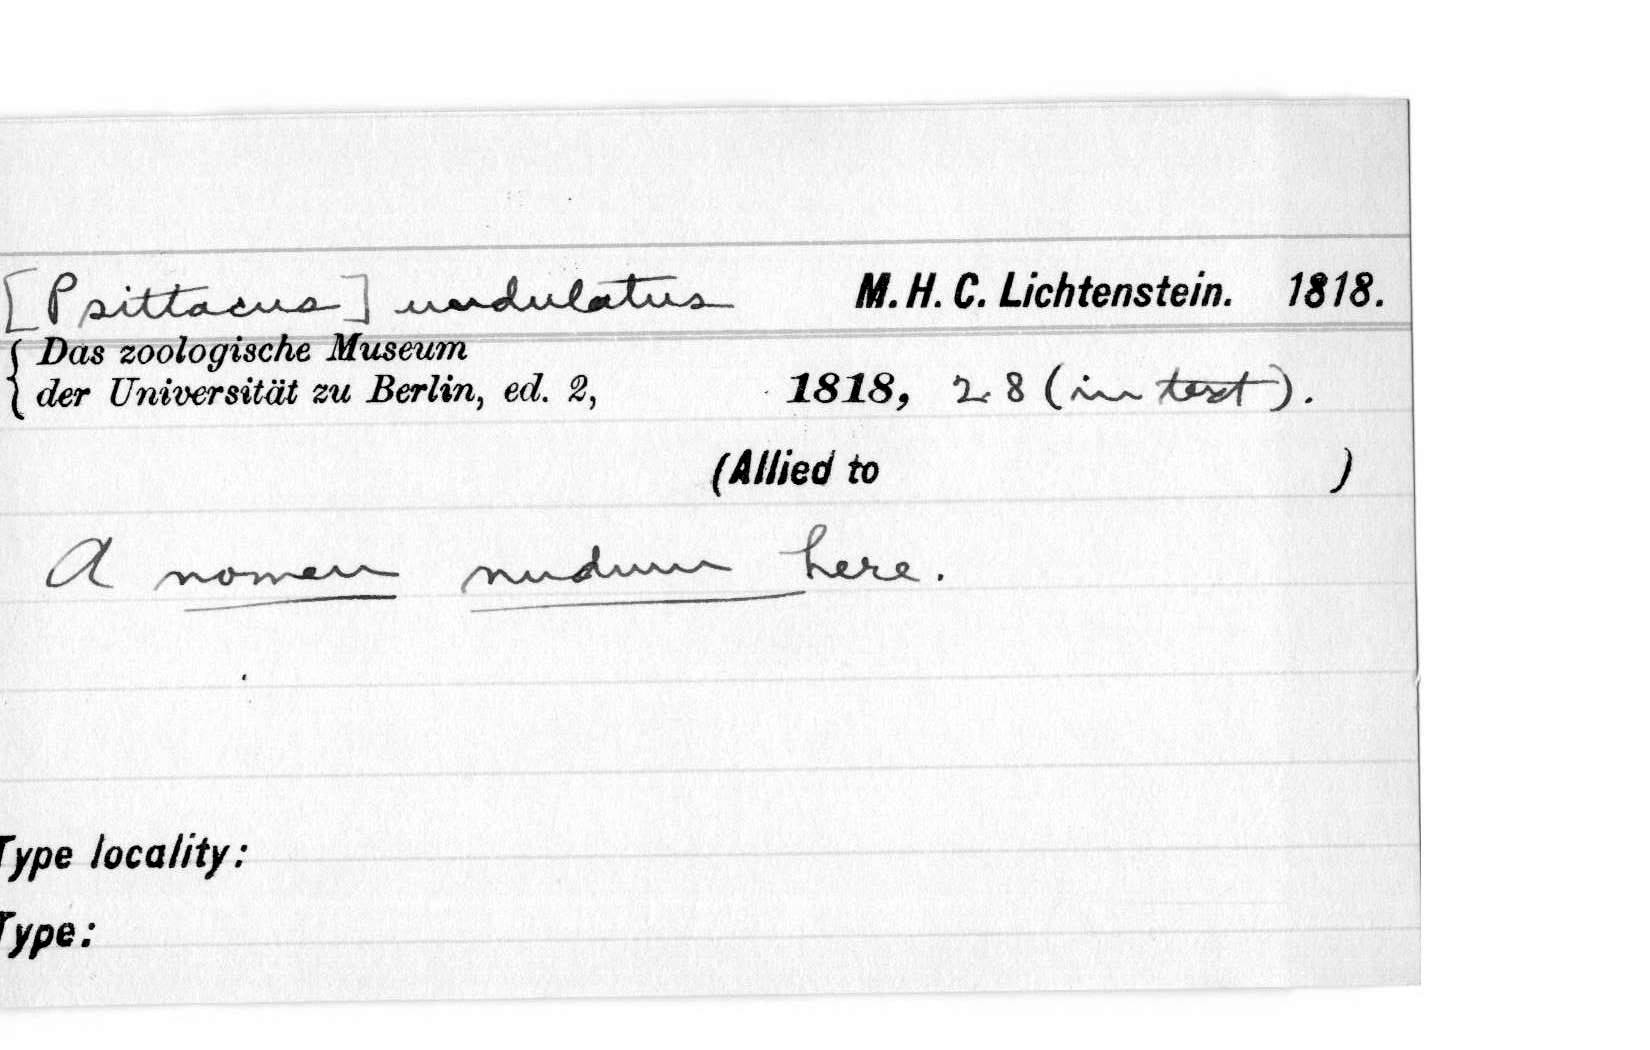 [Psittacus] undulatus M. H. C. Lichtenstein. 1818.
{ Das zoologische Museum
der Universität zu Berlin, ed. 2, 1818, 28 (in text).
(Allied to )
A nomen nudum here.
Type locality:
Type: